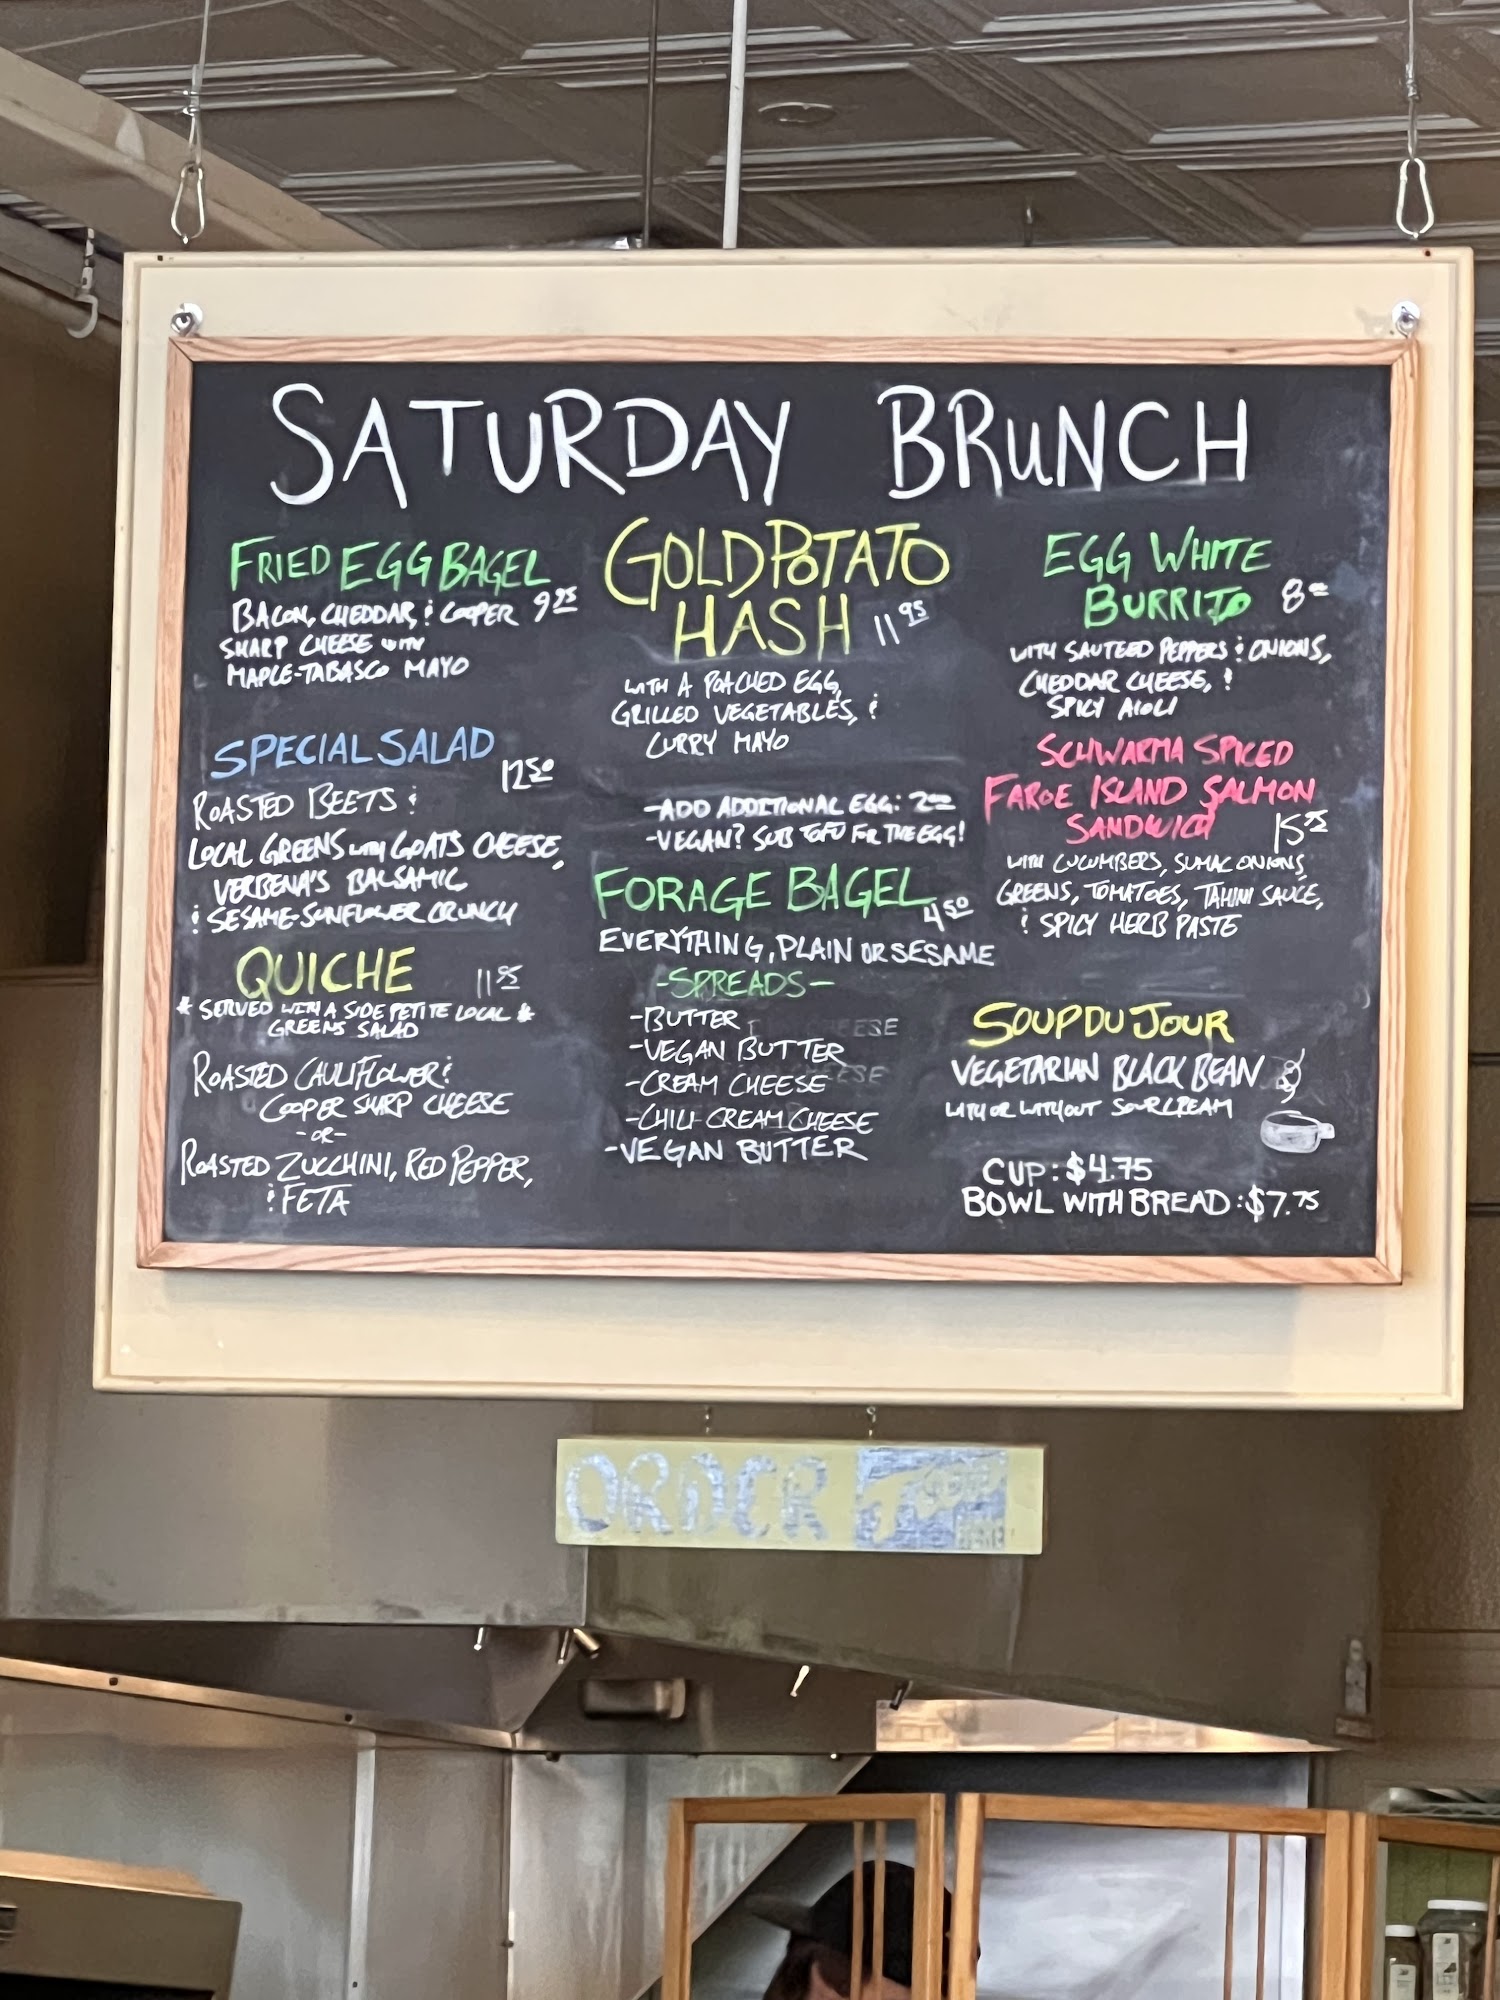 SATURDAY BRUNCH
FRIED EGG BAGEL
BACON, CHEDDAR, & COOPER 9.95
SHARP CHEESE WITH
MAPLE-TABASCO MAYO
SPECIAL SALAD
12.50
ROASTED BEETS &
LOCAL GREENS WITH GOATS CHEESE,
VERBENA'S BALSAMIC
& SESAME-SUNFLOWER CRUNCH
QUICHE 11.95
* SERVED WITH A SIDE PETITE LOCAL *
GREENS SALAD
ROASTED CAULIFLOWER &
COOPER SHARP CHEESE
-OR-
ROASTED ZUCCHINI, RED PEPPER,
& FETA
GOLD POTATO
HASH 11.95
WITH A POACHED EGG,
GRILLED VEGETABLES, &
CURRY MAYO
-ADD ADDITIONAL EGG: 2.00
-VEGAN? SUB TOFU FOR THE EGG!
FORAGE BAGEL
4.50
EVERYTHING, PLAIN OR SESAME
-SPREADS-
-BUTTER
-VEGAN BUTTER
-CREAM CHEESE
-CHILI CREAM CHEESE
-VEGAN BUTTER
EGG WHITE
BURRITO 8.00
WITH SAUTEED PEPPERS & ONIONS,
CHEDDAR CHEESE, &
SPICY AIOLI
SCHWARMA SPICED
FAROE ISLAND SALMON
SANDWICH 15.75
WITH CUCUMBERS, SUMAC ONIONS,
GREENS, TOMATOES, TAHINI SAUCE,
& SPICY HERB PASTE
SOUP DU JOUR
VEGETARIAN BLACK BEAN
WITH OR WITHOUT SOUR CREAM
CUP: $4.75
BOWL WITH BREAD: $7.75
ORDER